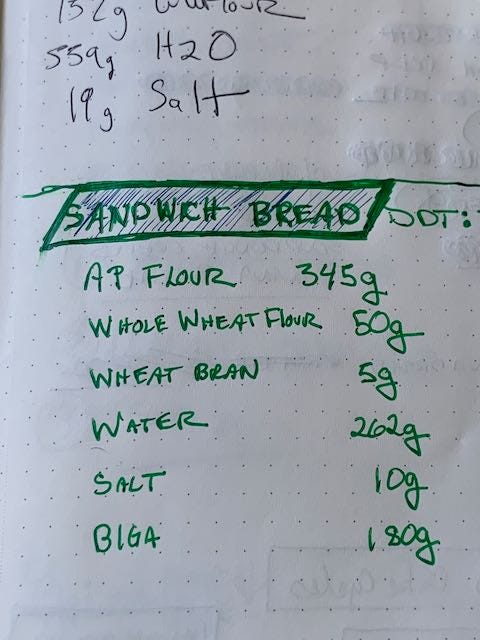 Flour
559g H2O
19g Salt
SANDWICH BREAD DDT:
AP FLOUR 345g
WHOLE WHEAT FLOUR 50g
WHEAT BRAN 5g
WATER 262g
SALT 10g
BIGA 180g